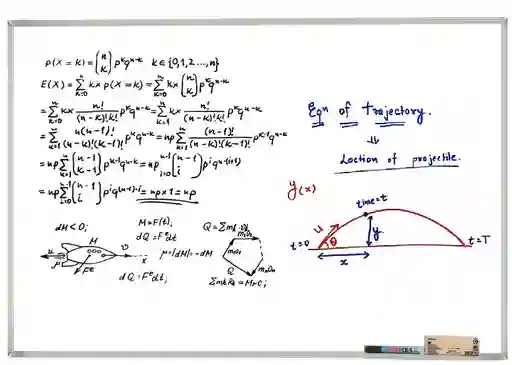 p(X = k) = (n k) p^k q^{n-k}   k ∈ {0,1,2 ...,n}
E(X) = Σ_{k=0}^{n} k × p(X = k) = Σ_{k=0}^{n} k × (n k) p^k q^{n-k}
= Σ_{k=0}^{n} k × n!/((n-k)! k!) p^k q^{n-k} = Σ_{k=1}^{n} k × n!/((n-k)! k!) p^k q^{n-k}
= Σ_{k=1}^{n} n(n-1)!/((n-k)!(k-1)!) p^k q^{n-k} = np Σ_{k=1}^{n} (n-1)!/((n-k)!(k-1)!) p^{k-1} q^{n-k}
= np Σ_{k=1}^{n} (n-1 k-1) p^{k-1} q^{n-k} = np Σ_{i=0}^{n-1} (n-1 i) p^i q^{n-(i+1)}
= np Σ_{i=0}^{n-1} (n-1 i) p^i q^{n-1-i} = np × 1 = np
dM < 0;
M = F(t);
dQ = F^e dt
μ = |dM| = -dM
M
u
v
μ
F^e
x
dQ = F^e dt;
Q
Eqn of trajectory.
⇓
Loction of projectile.
y(x)
time = t
u
θ
y
t = 0
t = T
x